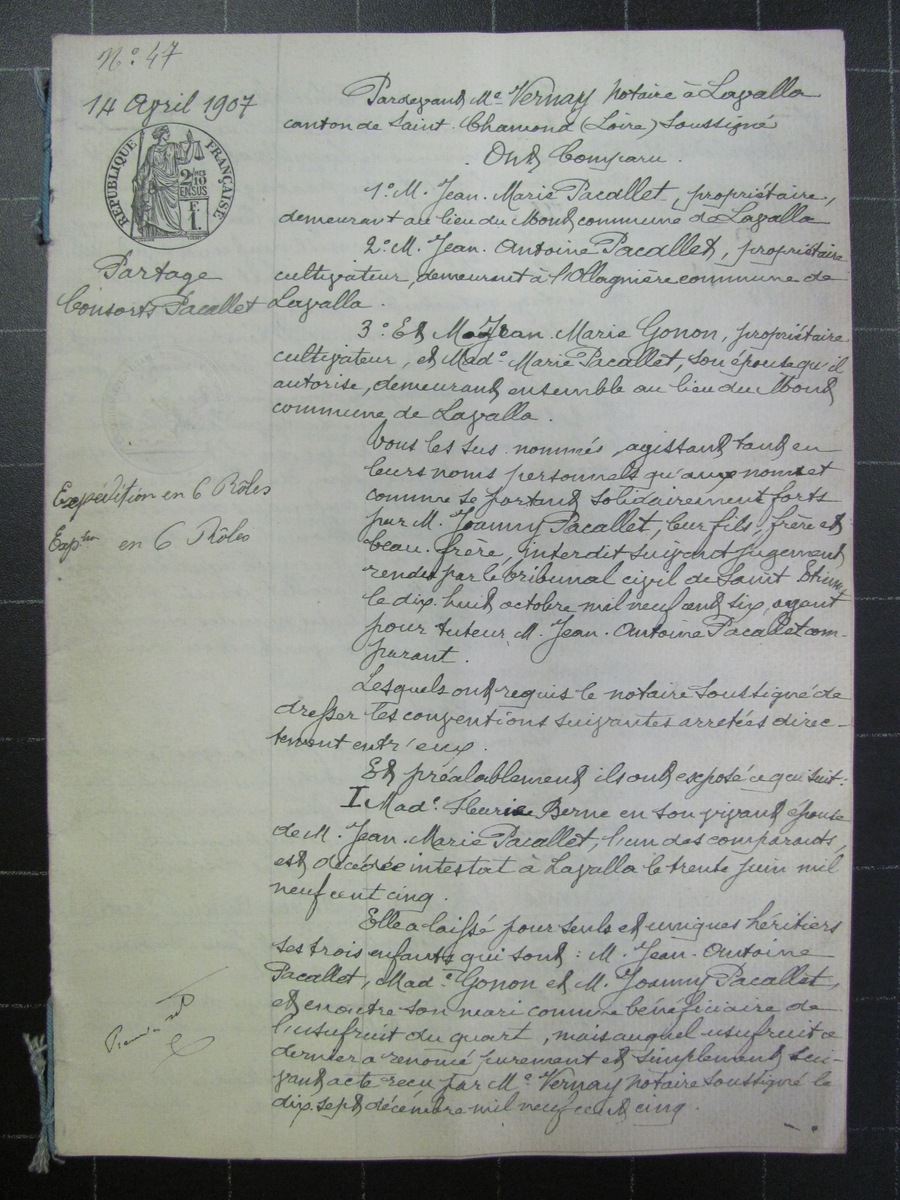 N° 47
14 Avril 1907
RÉPUBLIQUE FRANÇAISE
2/10
EN SUS
F.
1.
Partage
Consorts Pacallet
Expédition en 6 Rôles
Exp.on en 6 Rôles
Pardevant Me Vernay notaire à Lavalla
canton de Saint-Chamond (Loire) soussigné
Ont Comparu.
1° M. Jean-Marie Pacallet, propriétaire,
demeurant au lieu du Mont commune de Lavalla
2° M. Jean-Antoine Pacallet, propriétaire
cultivateur, demeurant à l'Ollagnière commune de
Lavalla.
3° Et M. Jean Marie Gonon, propriétaire
cultivateur, et Made Marie Pacallet, son épouse qu'il
autorise, demeurant ensemble au lieu du Mont
commune de Lavalla.
Tous les sus-nommés, agissant tant en
leurs noms personnels qu'aux noms et
comme se portant solidairement forts
par M. Joanny Pacallet, leur fils, frère et
beau-frère, interdit suivant jugement
rendu par le tribunal civil de Saint Etienne
le dix-huit octobre mil neuf cent six, ayant
pour tuteur M. Jean-Antoine Pacallet com-
parant.
Lesquels ont requis le notaire soussigné de
dresser les conventions suivantes arretées direc-
tement entr'eux.
Et préalablement ils ont exposé ce qui suit:
I Made Fleurie Berne en son vivant épouse
de M. Jean-Marie Pacallet, l'un des comparants,
est décédée intestat à Lavalla le trente juin mil
neuf cent cinq.
Elle a laissé pour seuls et uniques héritiers
ses trois enfants qui sont: M. Jean-Antoine
Pacallet, Made Gonon et M. Joanny Pacallet,
et en outre son mari comme bénéficiaire de
l'usufruit du quart, mais auquel usufruit ce
dernier a renoncé purement et simplement sui-
vant acte reçu par Me Vernay notaire soussigné le
dix-sept décembre mil neuf cent cinq.